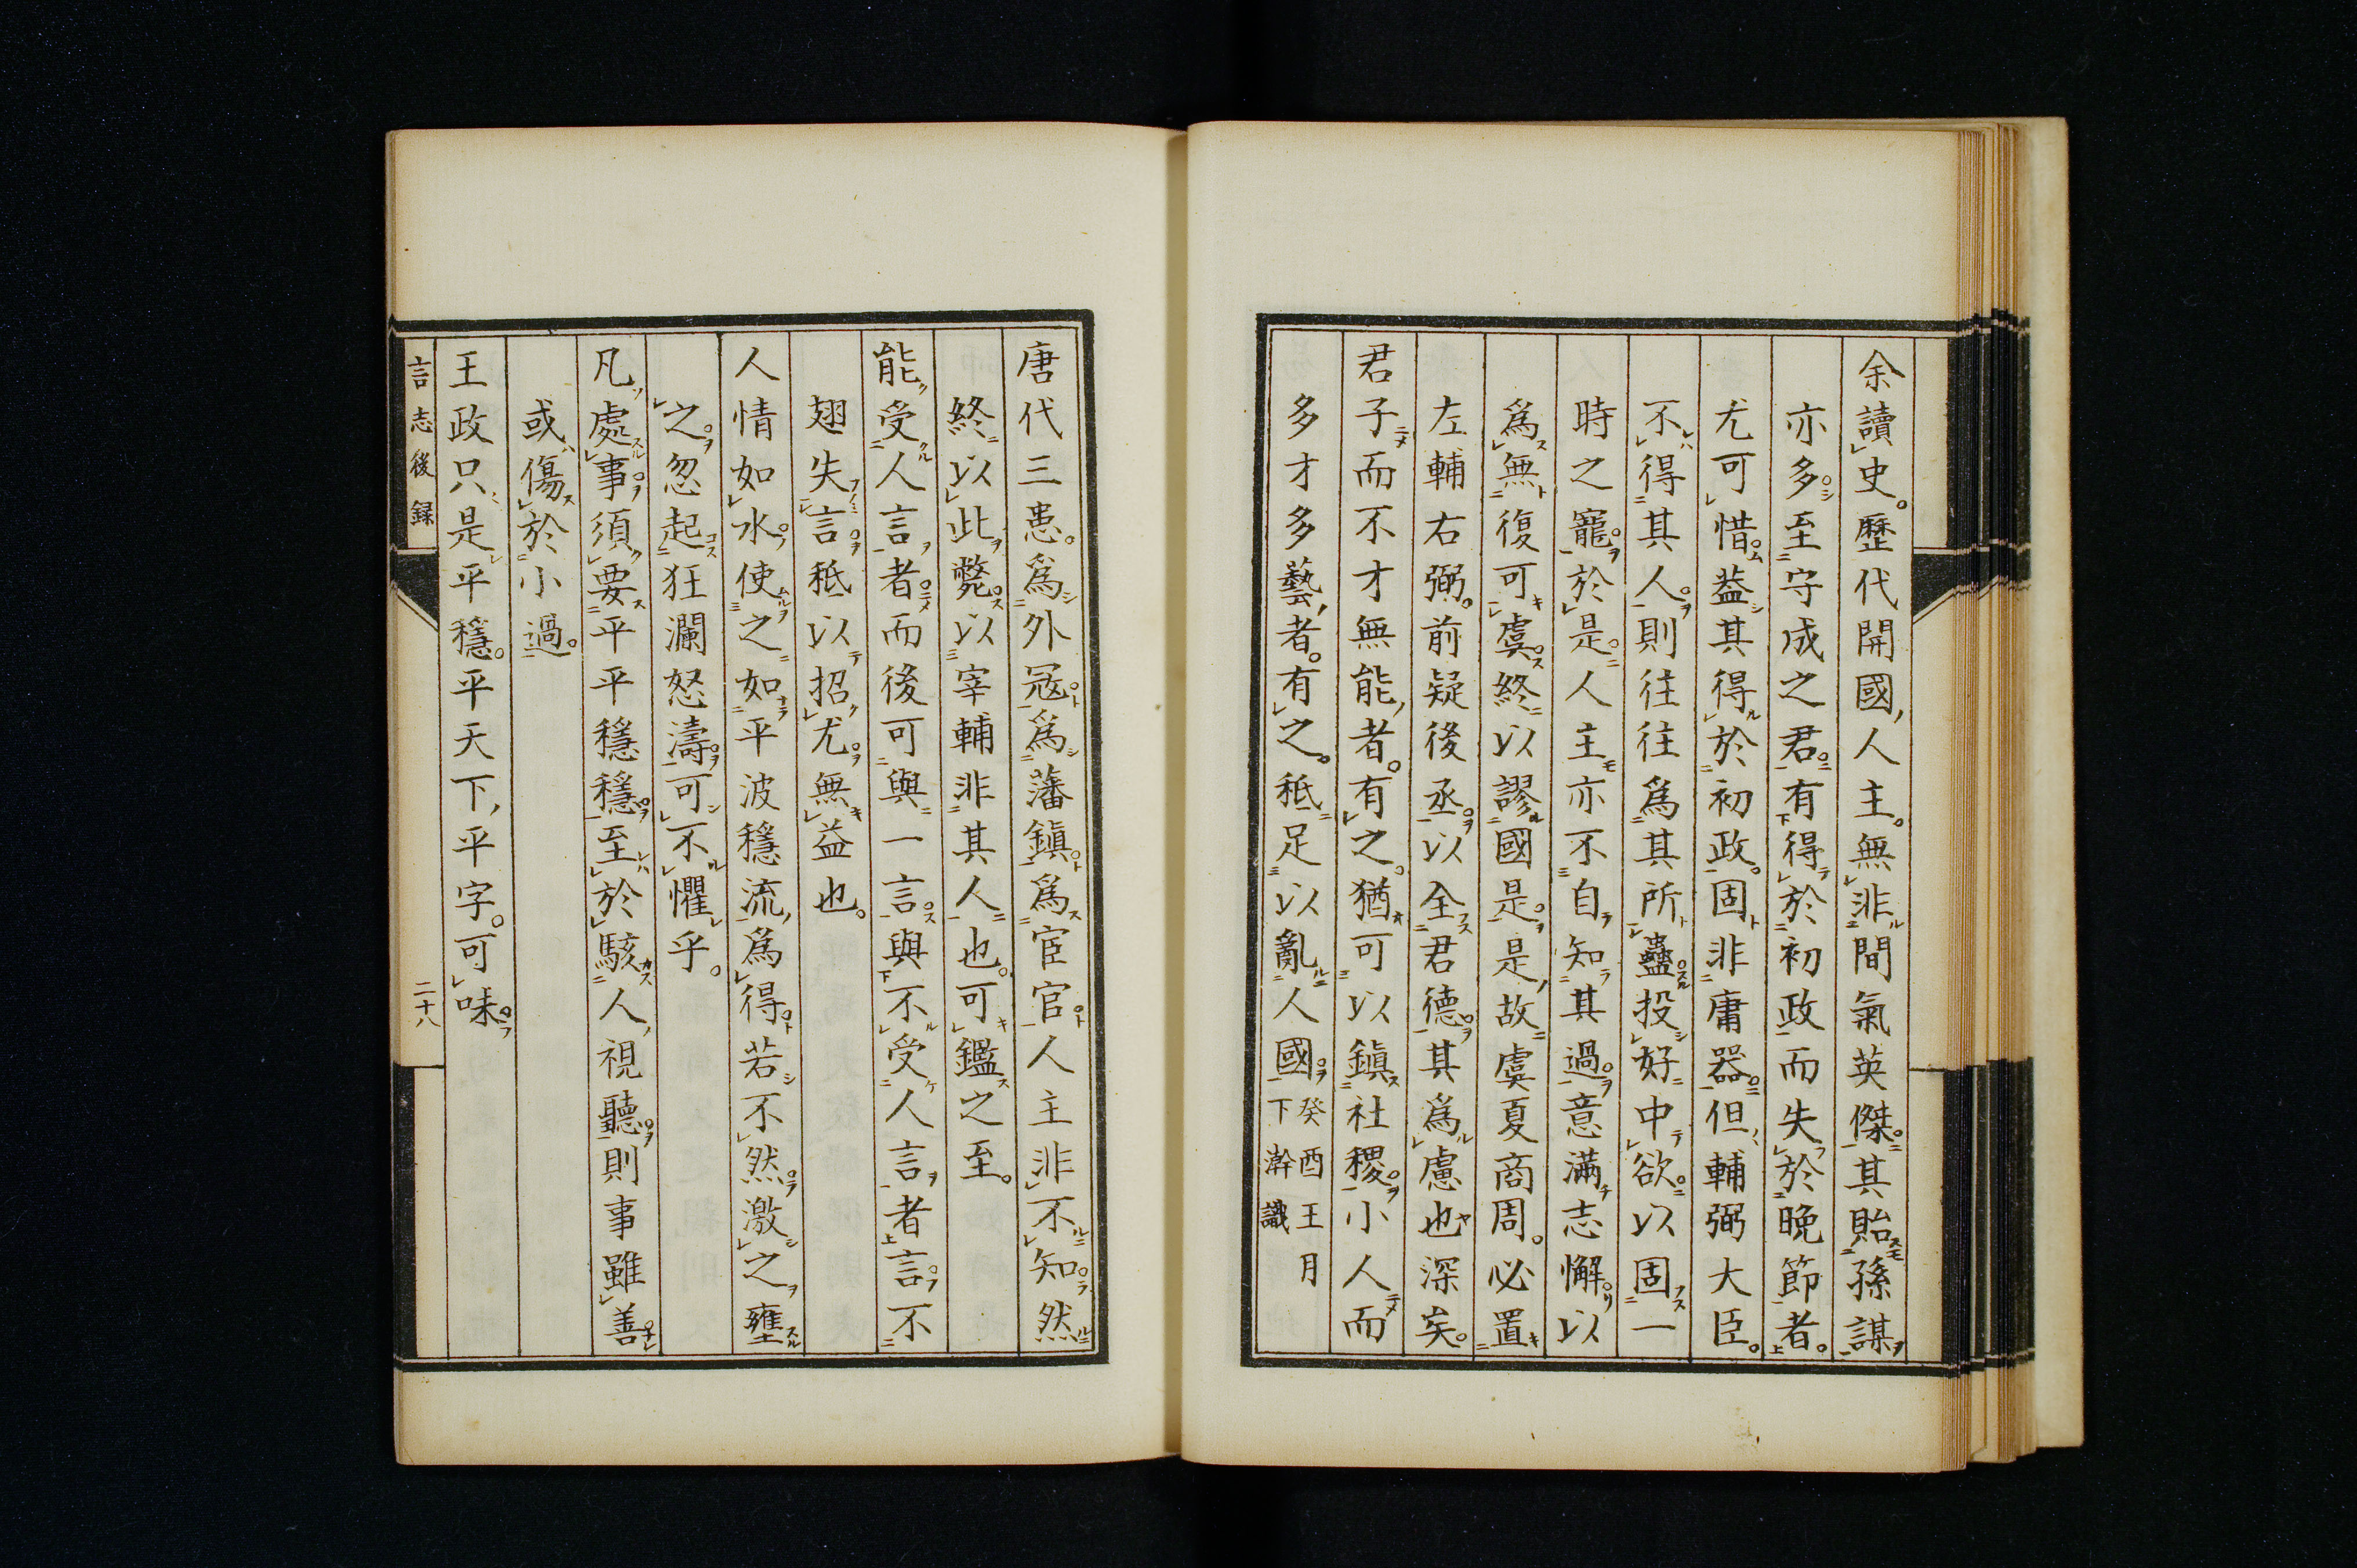 余讀史。歷代開國人主。無非間氣英傑。其貽孫謀
亦多。至守成之君。有得於初政而失於晚節者。
尤可惜。蓋其得於初政。固非庸器。但輔弼大臣。
不得其人。則往往爲其所蠱。投好中欲。以固一
時之寵。於是。人主亦不自知其過。意滿志懈。以
爲無復可虞。終以謬國是。是故虞夏商周。必置
左輔右弼。前疑後丞。以全君德。其爲慮也深矣。
君子而不才無能者。有之。猶可以鎭社稷。小人而
多才多藝者。有之。秖足以亂人國。癸酉王月
下澣識
唐代三患。爲外寇。爲藩鎭。爲宦官。人主非不知然
終以此斃。以宰輔非其人也。可鑑之至。
能受人言者。而後可與一言。與不受人言者言。不
翅失言。秖以招尤。無益也。
人情如水。使之如平波穩流爲得。若不然。激之壅
之。忽起狂瀾怒濤。可不懼乎。
凡處事。須要平平穩穩。至於駭人視聽。則事雖善。
或傷於小過。
王政只是平穩。平天下平字。可味。
言志後錄
二十八